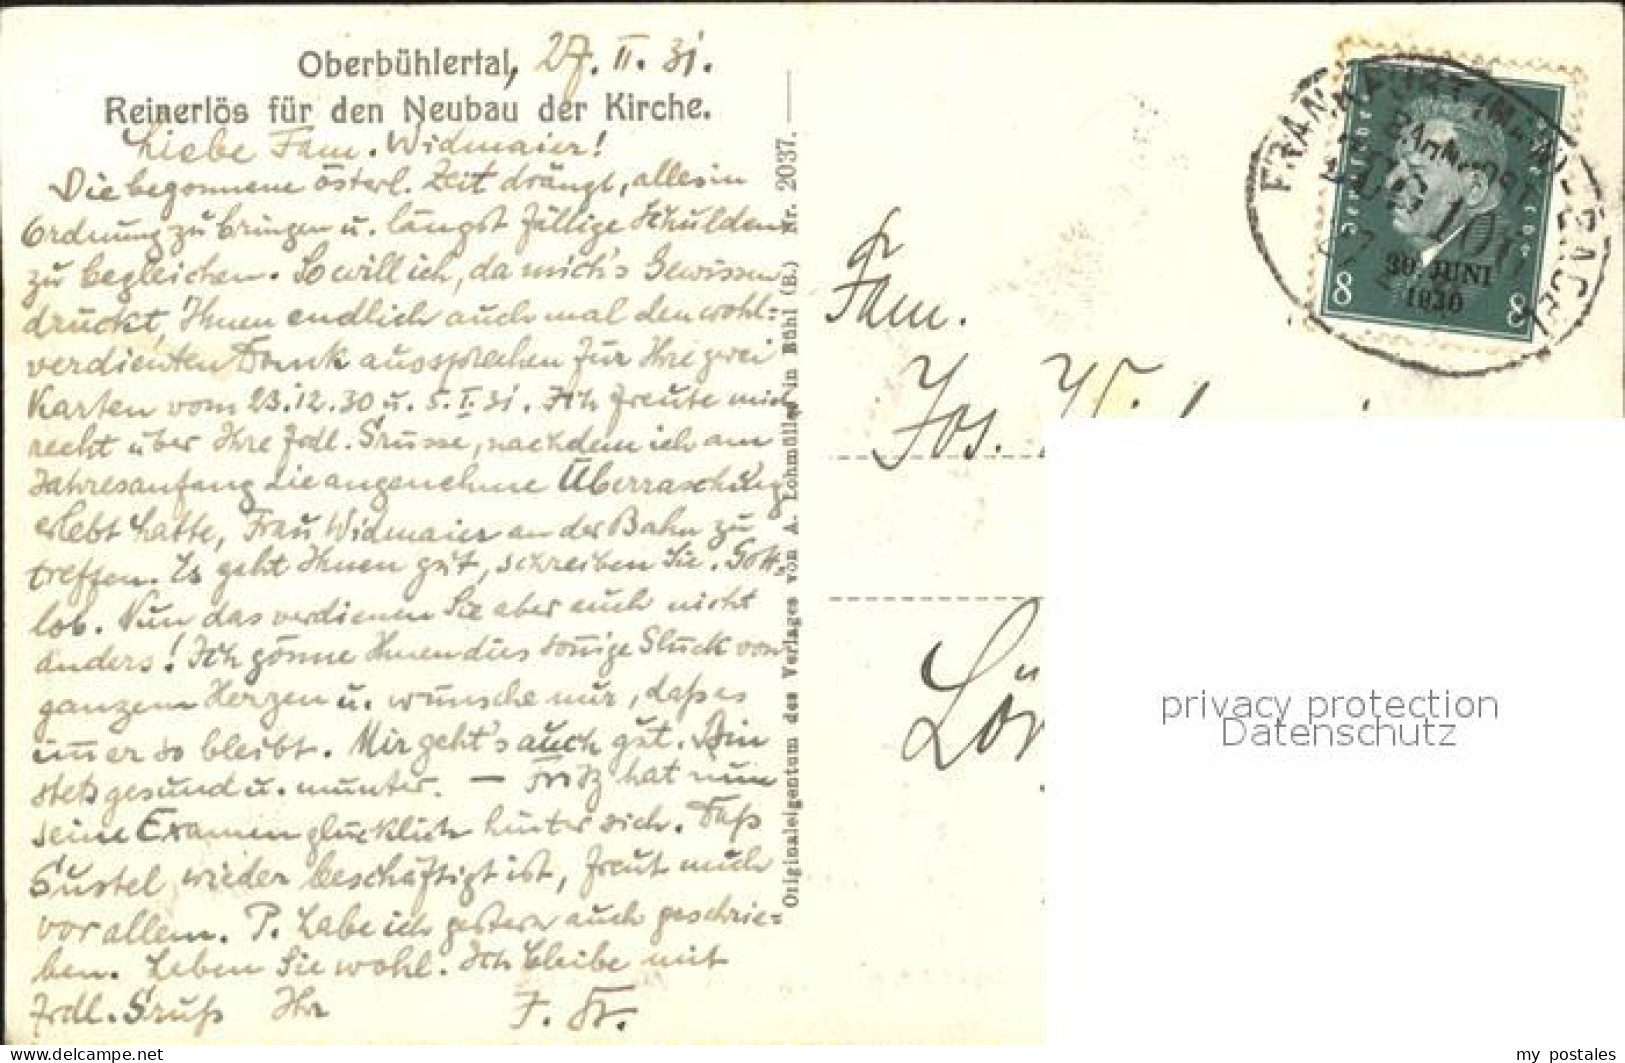 Oberbühlertal, 27. II. 31.
Reinerlös für den Neubau der Kirche.
Liebe Fam. Widmaier!
Die begonnene österl. Zeit drängt, alles in
Ordnung zu bringen u. längst fällige Schulden
zu begleichen. So will ich, da mich's Gewissen
drückt, Ihnen endlich auch mal den wohl=
verdienten Dank aussprechen für Ihre zwei
Karten vom 23.12.30 u. 5.I.31. Ich freute mich
recht über Ihre frdl. Grüsse, nachdem ich am
Jahresanfang die angenehme Überraschung
erlebt hatte, Frau Widmaier an der Bahn zu
treffen. Es geht Ihnen gut, schreiben Sie. Gott=
lob. Nun das verdienen Sie aber auch nicht
anders! Ich gönne Ihnen dies Glück von
ganzem Herzen u. wünsche nur, daß es
immer so bleibt. Mir geht's auch gut. Bin
stets gesund u. munter. — Fritz hat nun
seine Examen glücklich hinter sich. Daß
Gustel wieder beschäftigt ist, freut mich
vor allem. P. habe ich gestern auch geschrie=
ben. Leben Sie wohl. Ich bleibe mit
frdl. Gruß Ihr F. St.
Originaleigentum des Verlages von A. Lohmüller in Bühl (B.) Nr. 2037.
Fam.
Jos. Wi
Lör
FRANKFURT (M.)
BAHNPOST
ZUG
Deutsches Reich
30. JUNI
1930
8 8
privacy protection
Datenschutz
my_postales
www.delcampe.net